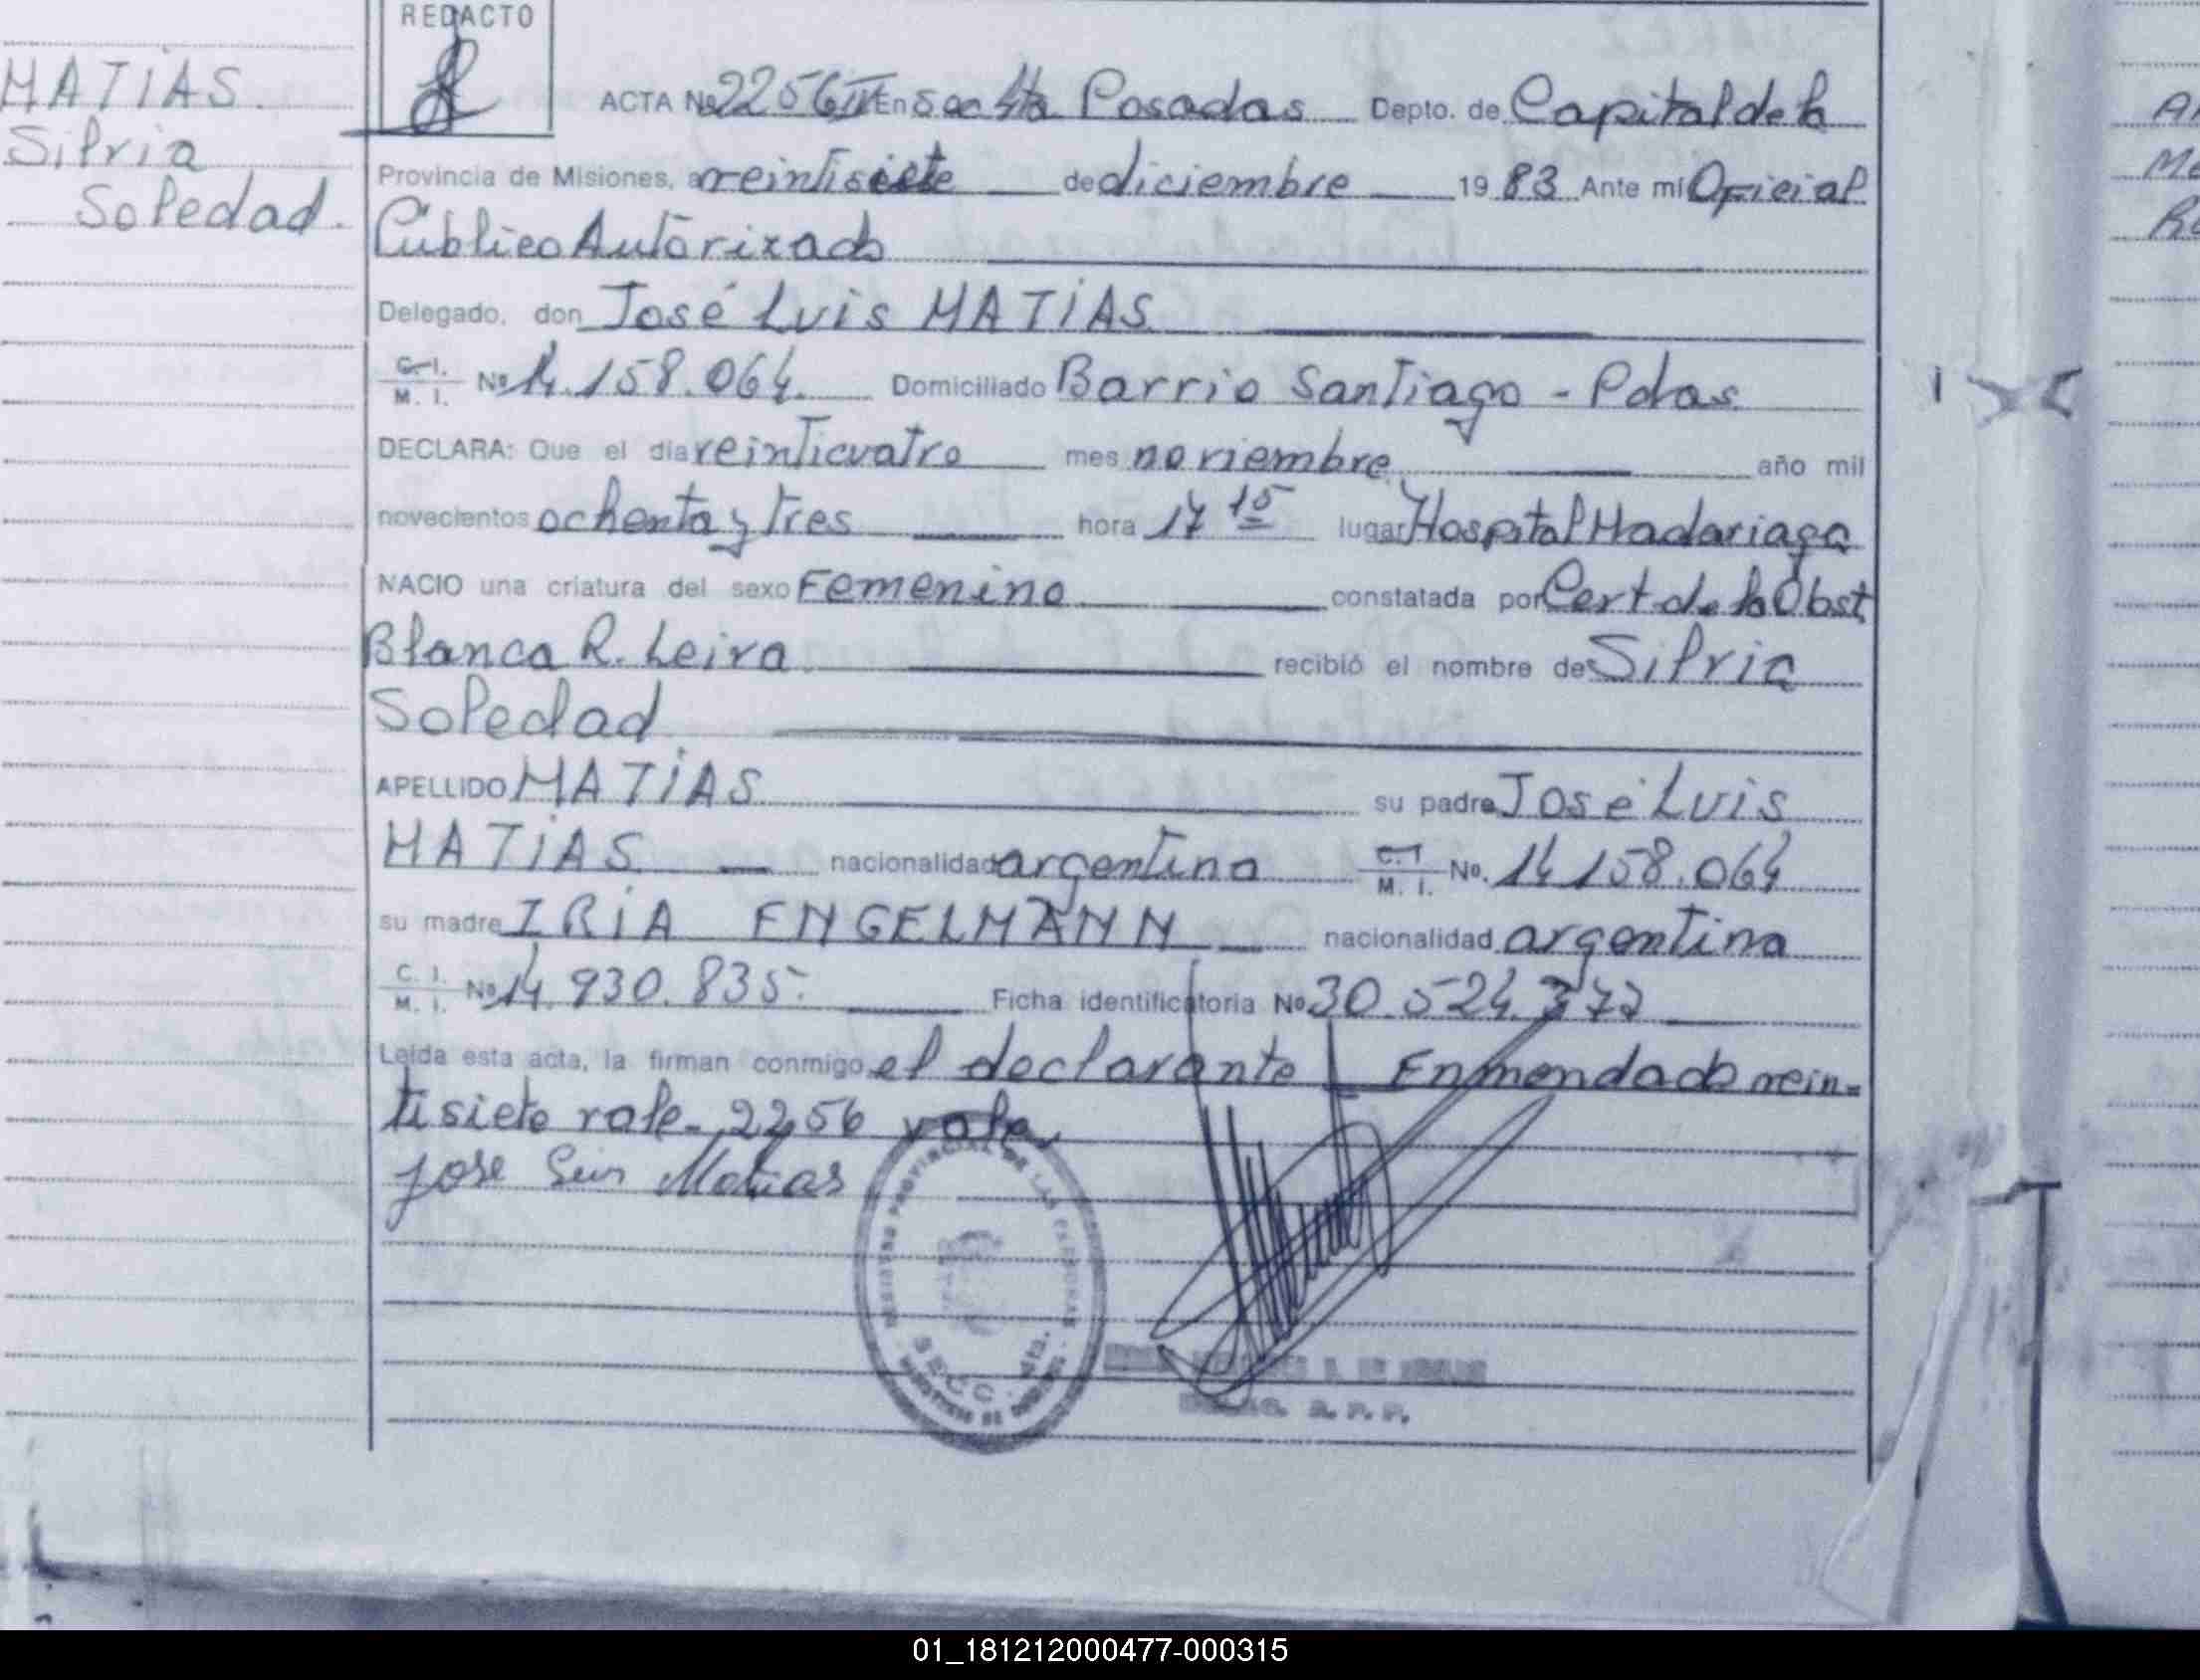 REDACTO
MATIAS.
Silvia
Soledad.
ACTA Nº 2256 En Secc 4ta Posadas Depto. de Capital de la
Provincia de Misiones, a veintisiete de diciembre 1983 Ante mí Oficial
Público Autorizado
Delegado, don José Luis MATIAS
C. I. M. I. Nº 14.158.064. Domiciliado Barrio Santiago - Pdas
DECLARA: Que el día veinticuatro mes noviembre año mil
novecientos ochenta y tres hora 17 15 lugar Hospital Madariaga
NACIO una criatura del sexo Femenino constatada por Cert de la Obst
Blanca R. Leiva recibió el nombre de Silvia
Soledad
APELLIDO MATIAS su padre José Luis
MATIAS nacionalidad argentina C. I. M. I. No. 14 158.064
su madre IRIA ENGELMANN nacionalidad argentina
C. I. M. I. Nº 14.930.835. Ficha identificatoria Nº 30.524.377
Leída esta acta, la firman conmigo el declarante Enmendado vein=
tisiete vale- 2256 vale
Jose Luis Matias
REGISTRO PROVINCIAL DE LAS PERSONAS
SECC. 4ta.
01_181212000477-000315